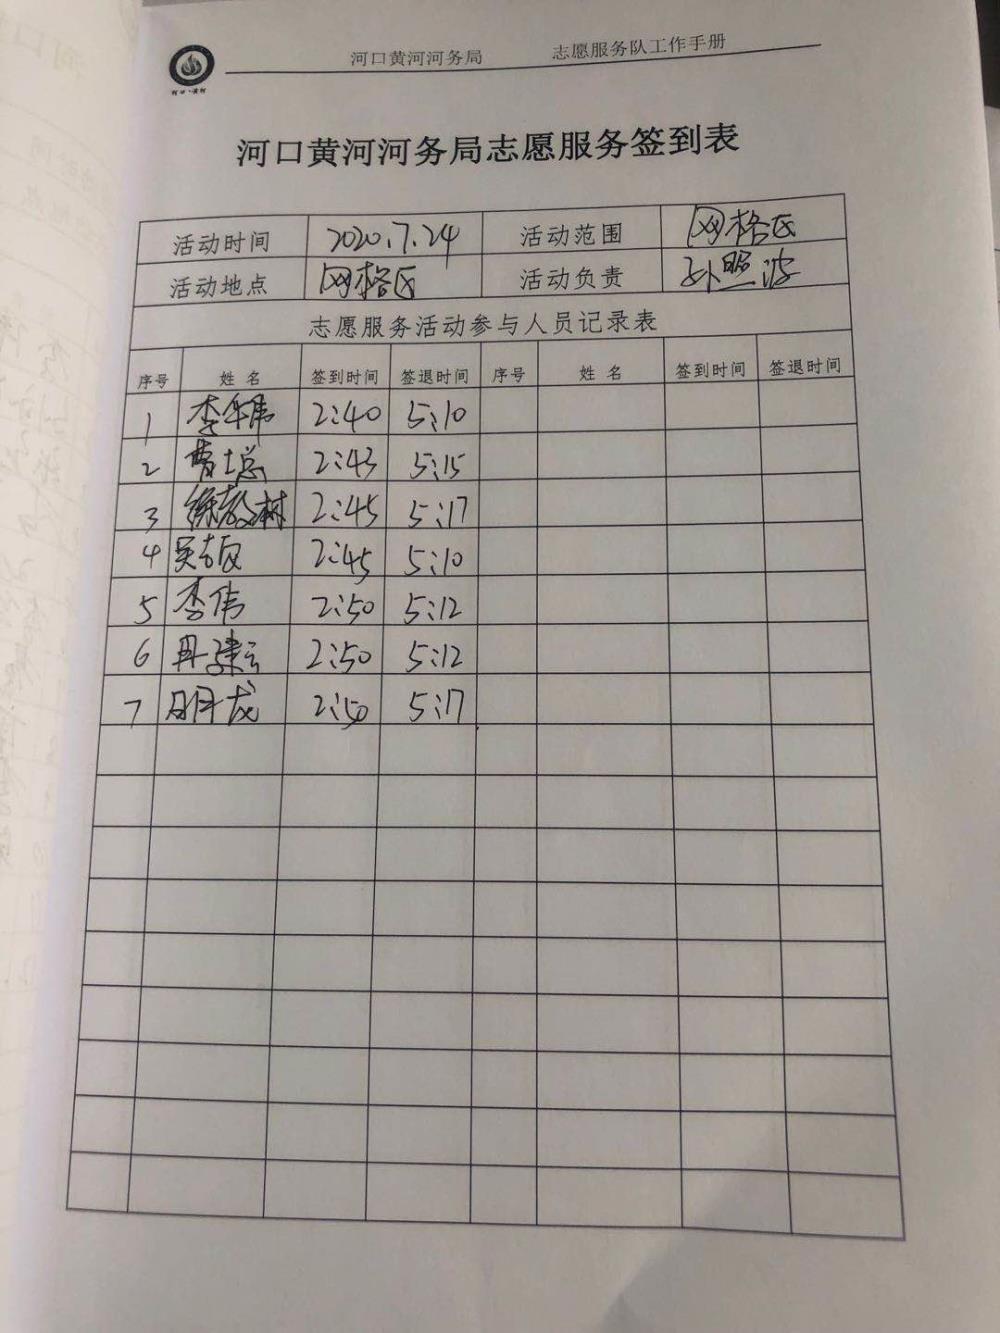 河口黄河河务局 志愿服务队工作手册
河口·黄河
河口黄河河务局志愿服务签到表
活动时间 2020.7.24 活动范围 网格区
活动地点 网格区 活动负责 孙照波
志愿服务活动参与人员记录表
序号 姓名 签到时间 签退时间 序号 姓名 签到时间 签退时间
1 李华伟 2:40 5:10
2 曹士总 2:43 5:15
3 徐教树 2:45 5:17
4 吴志 2:45 5:10
5 李伟 2:50 5:12
6 冉建云 2:50 5:12
7 明龙 2:50 5:17